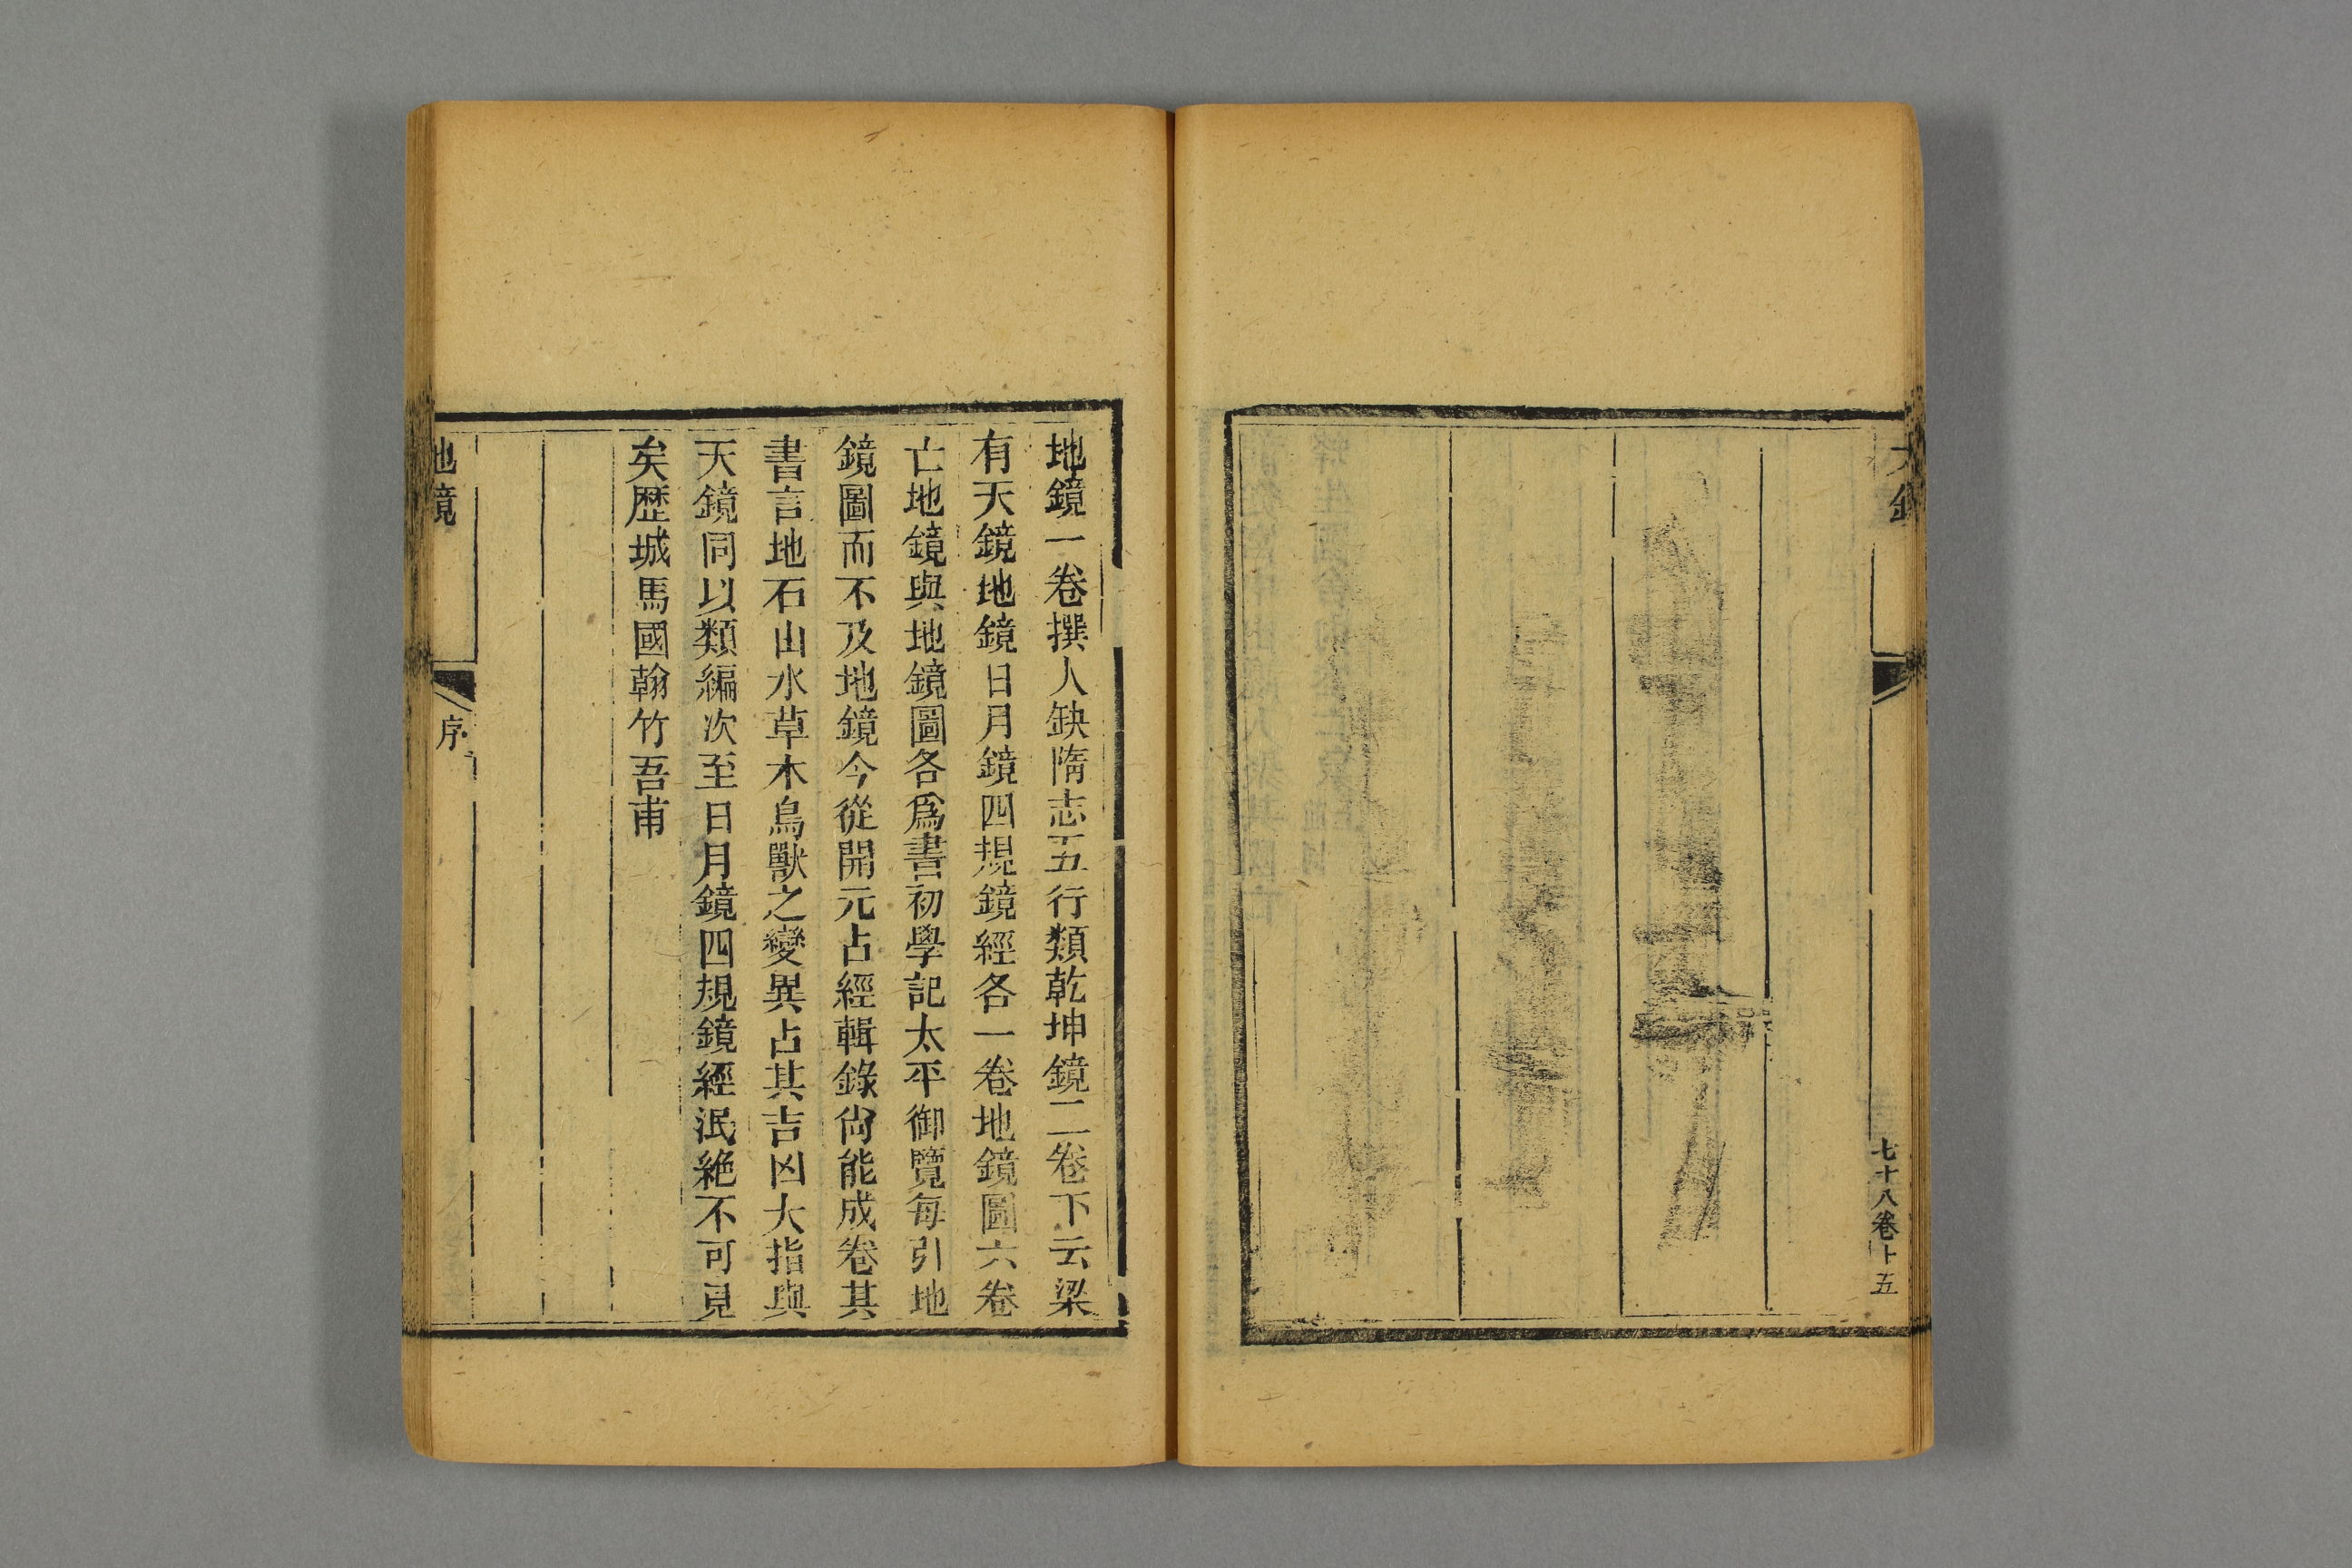 七十八卷十五
地鏡一卷撰人缺隋志五行類乾坤鏡二卷下云梁
有天鏡地鏡日月鏡四規鏡經各一卷地鏡圖六卷
亡地鏡與地鏡圖各爲書初學記太平御覽每引地
鏡圖而不及地鏡今從開元占經輯錄尙能成卷其
書言地石山水草木鳥獸之變異占其吉凶大指與
天鏡同以類編次至日月鏡四規鏡經泯絶不可見
矣歷城馬國翰竹吾甫
地鏡
序